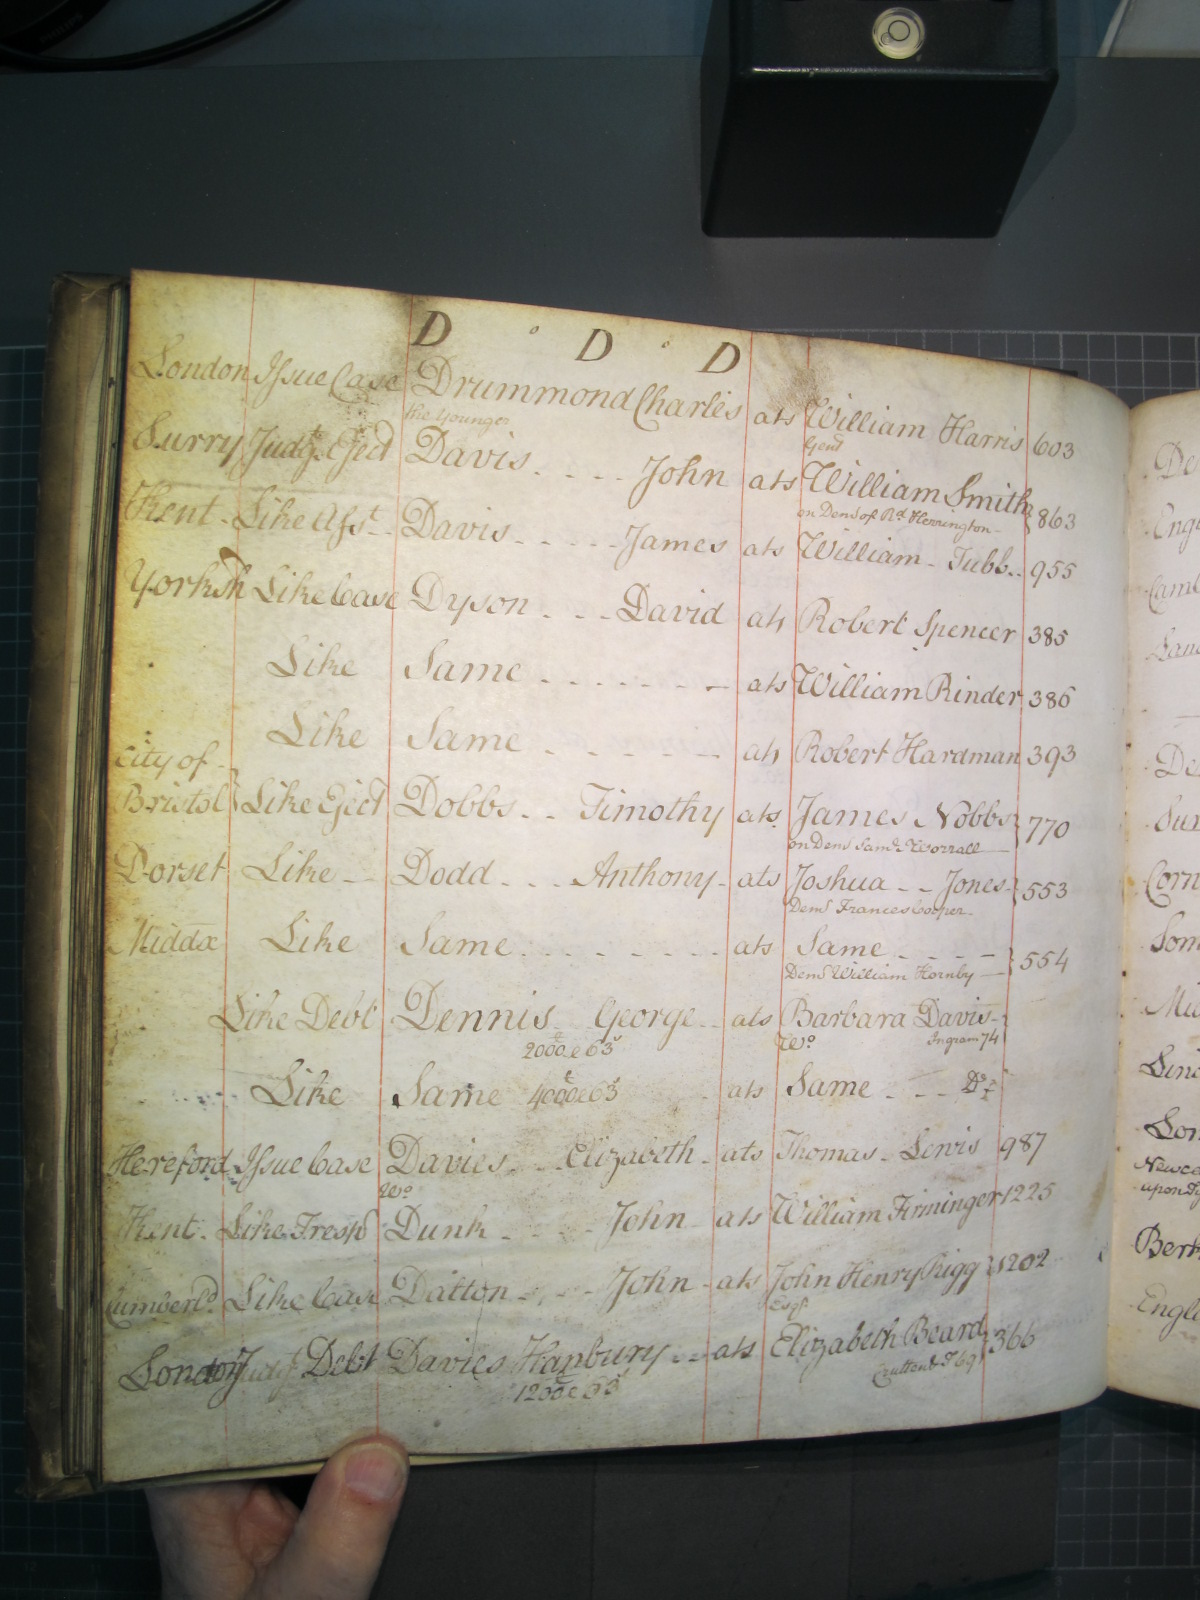 D D D
London Issue Case Drummond Charles ats William Harris 603
the Younger Gent
Surry Judgt. Eject Davis John ats William Smith 863
on Dem of Rd Herrington
Kent Like Asst. Davis James ats William Tubb 955
Yorksh Like Case Dyson David ats Robert Spencer 385
Like Same ats William Rinder 386
Like Same ats Robert Hardman 393
City of
Bristol Like Eject Dobbs Timothy ats James Nobbs 770
on Dem Saml. Worrall
Dorset Like Dodd Anthony ats Joshua Jones 553
Dem Frances Cooper
Middx Like Same ats Same 554
Dem William Hornby
Like Debt Dennis George ats Barbara Davis
2000 & 63s Wo Ingram 74
Like Same 4000 & 63s ats Same Do
Hereford Issue Case Davies Elizabeth ats Thomas Lewis 987
Wo
Kent Like Tresps Dunk John ats William Firminger 1225
Cumberld Like Case Dalton John ats John Henry Rigg 1202
Esqr
London Judgt Debt Davies Hanbury ats Elizabeth Beard 366
1200 & 63s Cruttend T 69
De
Engl
Camb
De
Sur
Corn
Som
Linc
Lon
Newca
upon Ty
Berk
Engl